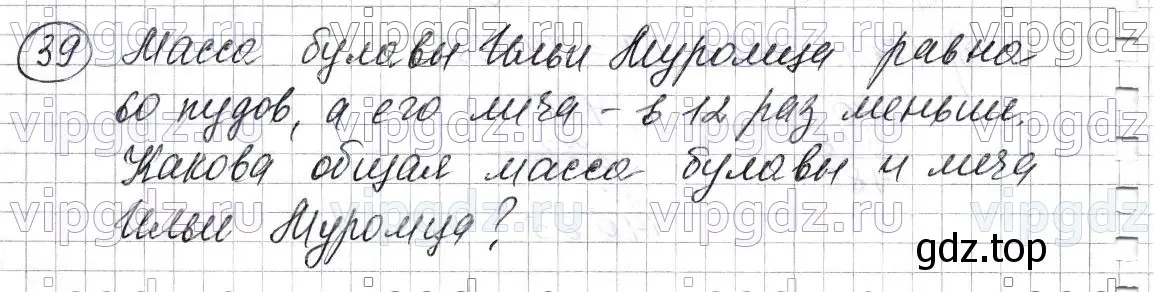 39 Масса булавы Ильи Муромца равна
60 пудов, а его меча – в 12 раз меньше.
Какова общая масса булавы и меча
Ильи Муромца?
gdz.top